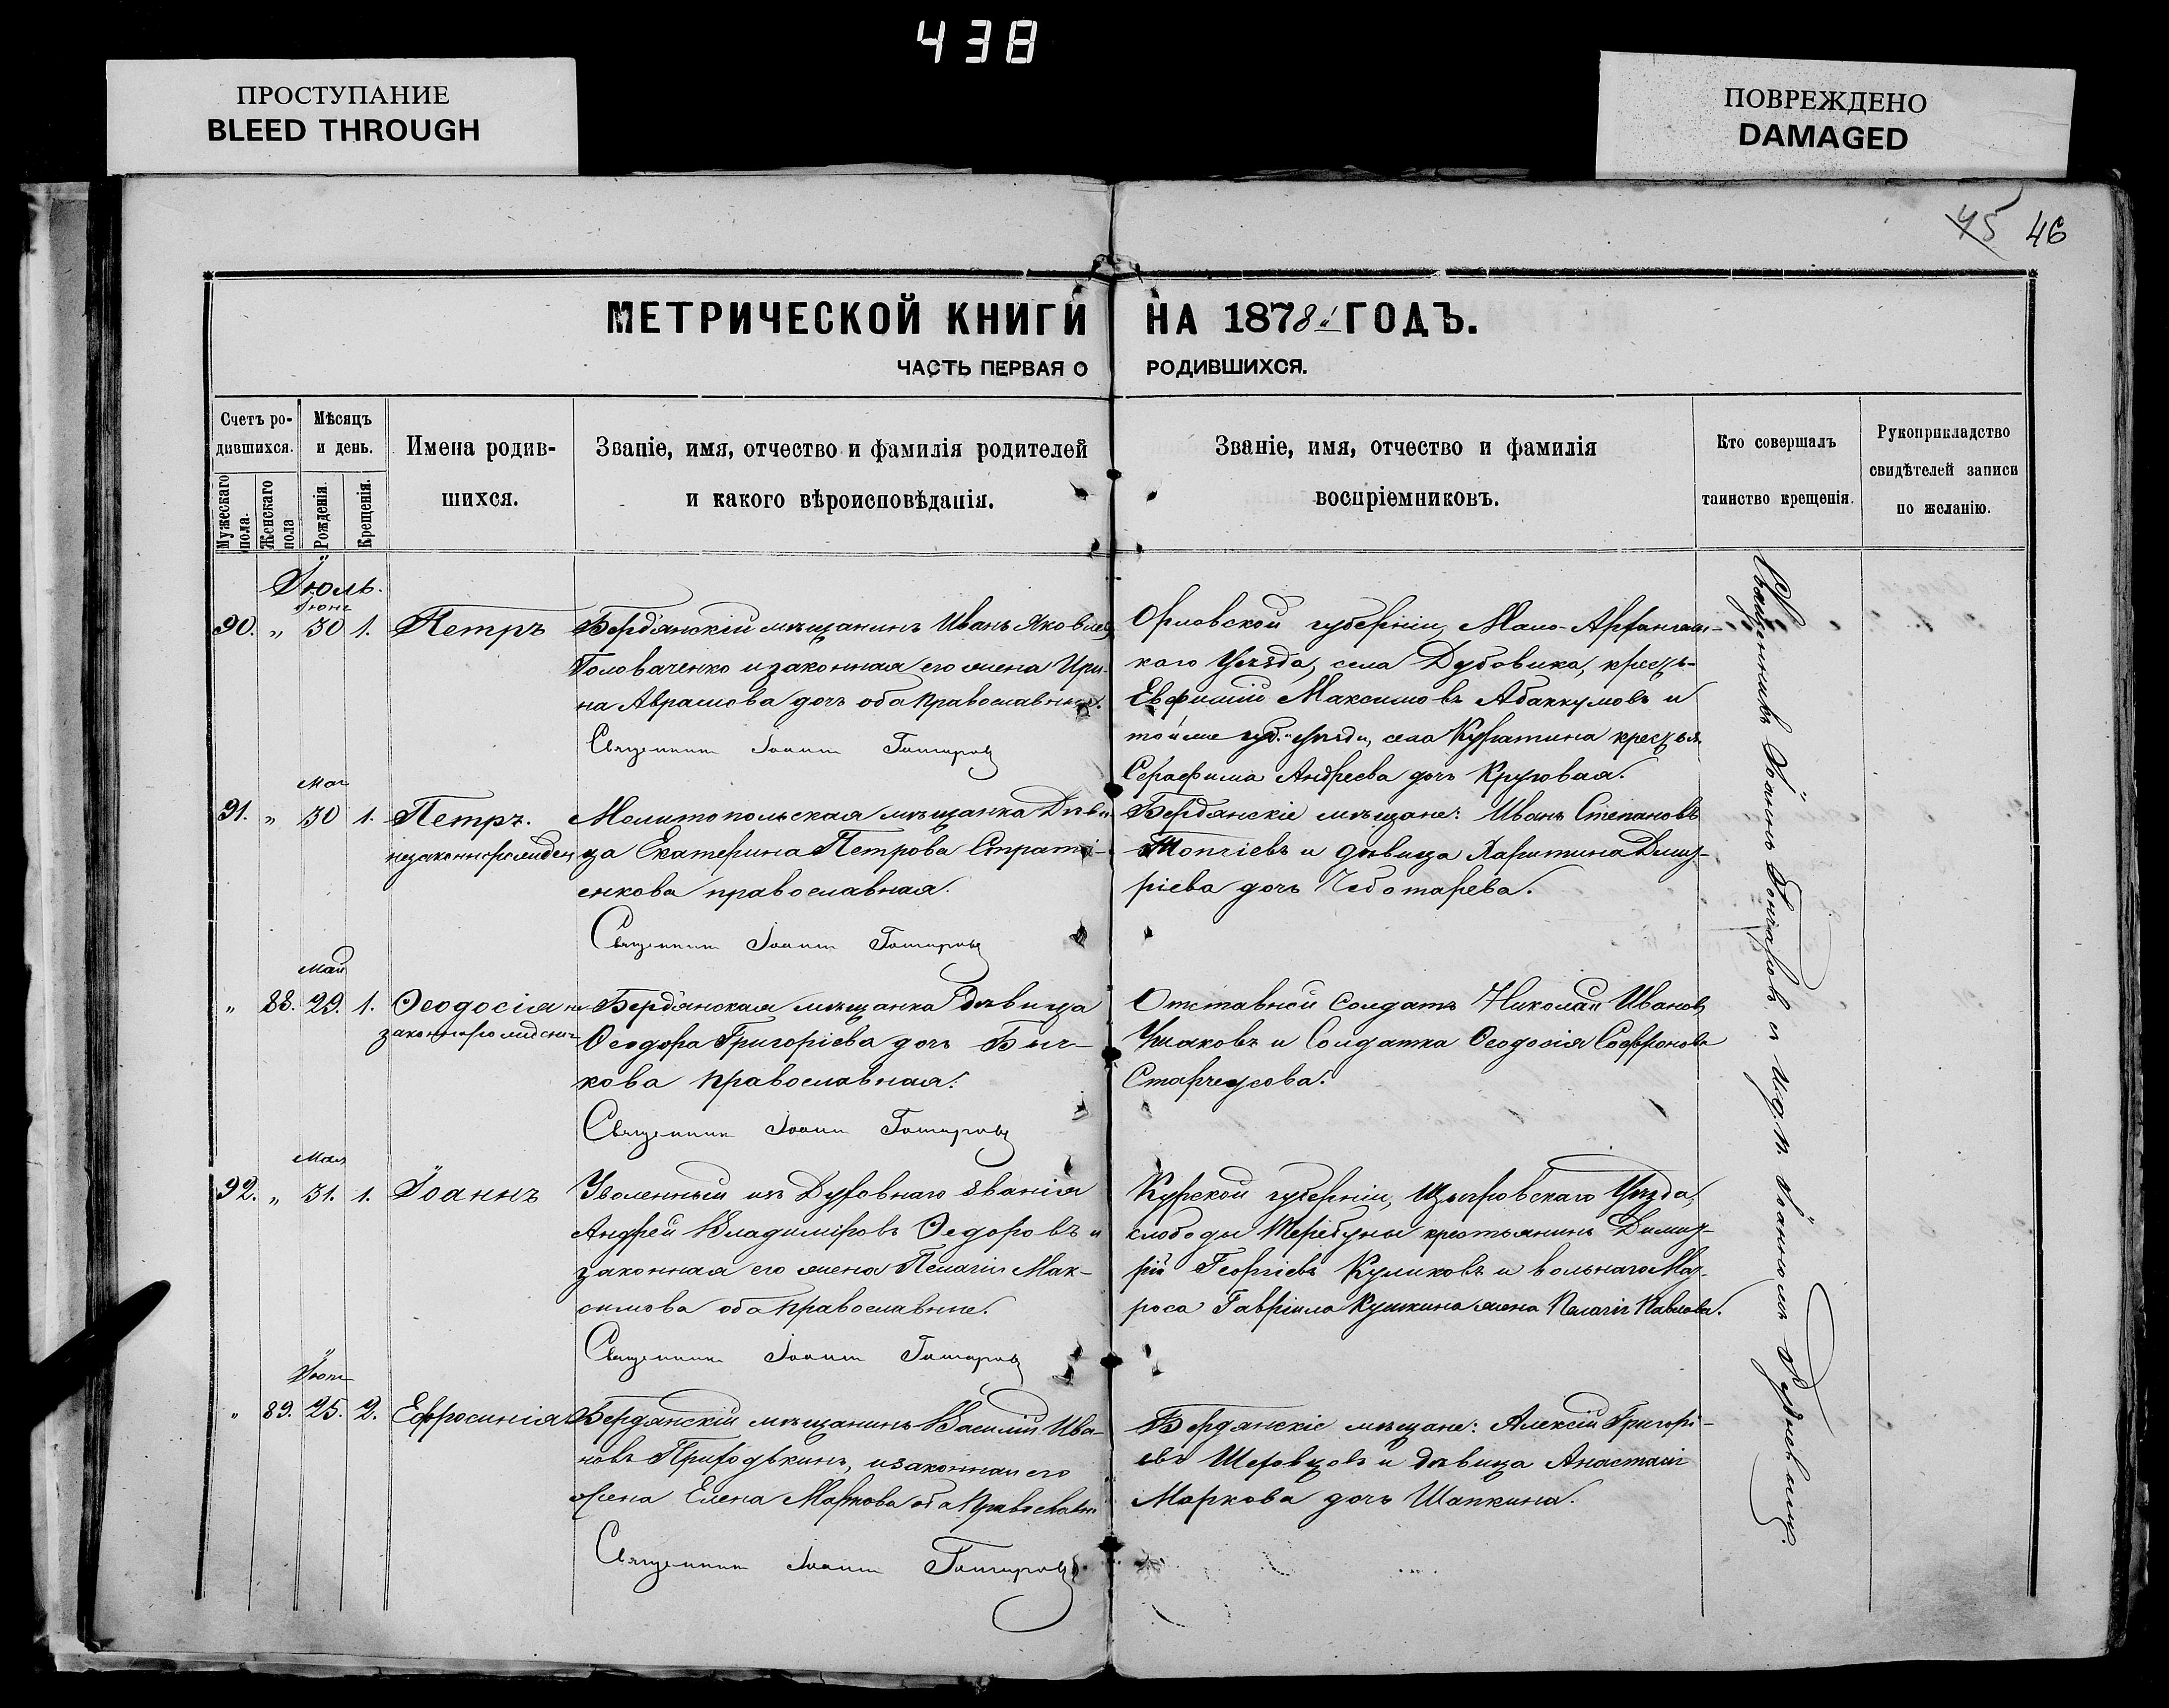 438
ПРОСТУПАНИЕ
BLEED THROUGH
ПОВРЕЖДЕНО
DAMAGED
45 46
МЕТРИЧЕСКОЙ КНИГИ НА 1878й ГОДЪ.
ЧАСТЬ ПЕРВАЯ О РОДИВШИХСЯ.
Счетъ ро-
дившихся.
Мужескаго пола.
Женскаго пола
Мѣсяцъ
и день.
Рожденія.
Крещенія.
Имена родив-
шихся.
Званіе, имя, отчество и фамилія родителей
и какого вѣроисповѣданія.
Званіе, имя, отчество и фамилія
воспріемниковъ.
Кто совершалъ
таинство крещенія.
Рукоприкладство
свидѣтелей записи
по желанію.
Іюль.
Іюня
90. " 30 1. Петръ
Бердянскій мѣщанинъ Иванъ Яковлевъ
Головаченко и законная его жена Ири-
на Аврамова дочь оба православные.
Священникъ Іоаннъ
Орловской губерніи, Мало-Архангельс-
каго Уѣзда, села Дубовика, крестъ-
Евфимій Максимовъ Абаккумовъ и
той же губ. и уѣзда, села Куратина крестья
Серафима Андреева дочь Круговая.
Мая
91. " 30 1. Петръ.
незаконнорожден
Мелитопольская мѣщанка Дѣви-
ца Екатерина Петрова Страті-
енкова православная.
Священникъ Іоаннъ
Бердянскіе мѣщане: Иванъ Степановъ
Топчіевъ и дѣвица Харитина Димит-
ріева дочь Чеботарева.
Май
" 88. 29. 1. Ѳеодосія не
законнорожден
Бердянская мѣщанка дѣвица
Ѳеодора Григоріева дочь Быч-
кова православная.
Священникъ Іоаннъ
Отставной Солдатъ Николай Ивановъ
Ушаковъ и Солдатка Ѳеодосія Софронова
Старчеусова.
Мая
92. " 31. 1. Іоаннъ
Уволенный изъ Духовнаго званія
Андрей Владиміровъ Ѳедоровъ и
законная его жена Пелагія Мак-
симова оба православные.
Священникъ Іоаннъ
Курской губерніи, Щигровскаго Уѣзда,
слободы Теребуны крестьянинъ Димит-
рій Георгіевъ Куликовъ и вольнаго Мат-
роса Гавріила Кушкина жена Пелагія Павлова.
Іюня
" 89. 25. 2. Ефросинія
Бердянскій мѣщанинъ Василій Ива-
новъ Приходькинъ, и законная его
жена Елена Маркова оба Православн
Священникъ Іоаннъ
Бердянскіе мѣщане: Алексій Григорі-
евъ Шеховцовъ и дѣвица Анастасія
Маркова дочь Шапкина.
Священникъ Іоаннъ и И.д.п. Іоанномъ